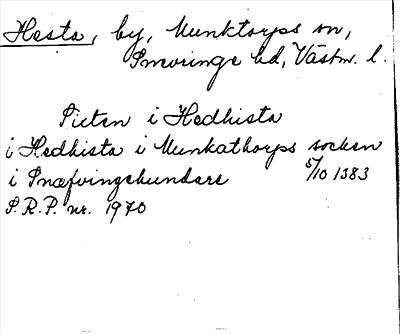 Hesta, by, Munktorps sn,
Snevringe hd, Västm. l.
Sicten i Hedhista
i Hedhista i Munkathorps socken
i Snæfvingshundare 5/10 1383
S.R.P. nr. 1970